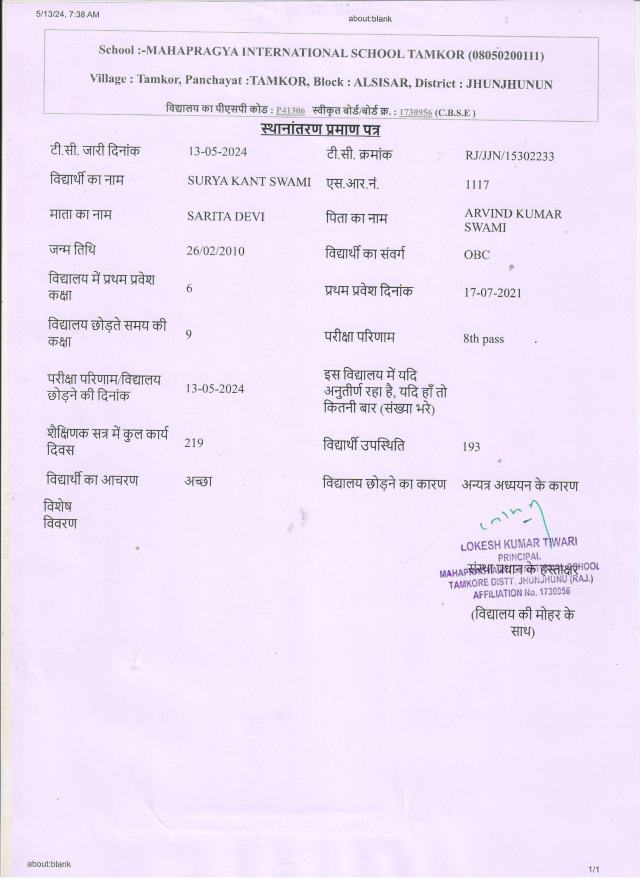 5/13/24, 7:38 AM about:blank
School :-MAHAPRAGYA INTERNATIONAL SCHOOL TAMKOR (08050200111)
Village : Tamkor, Panchayat :TAMKOR, Block : ALSISAR, District : JHUNJHUNUN
विद्यालय का पीएसपी कोड : P41306 स्वीकृत बोर्ड/बोर्ड क्र. : 1730956 (C.B.S.E )
स्थानांतरण प्रमाण पत्र
टी.सी. जारी दिनांक 13-05-2024 टी.सी. क्रमांक RJ/JJN/15302233
विद्यार्थी का नाम SURYA KANT SWAMI एस.आर.नं. 1117
माता का नाम SARITA DEVI पिता का नाम ARVIND KUMAR
SWAMI
जन्म तिथि 26/02/2010 विद्यार्थी का संवर्ग OBC
विद्यालय में प्रथम प्रवेश
कक्षा 6 प्रथम प्रवेश दिनांक 17-07-2021
विद्यालय छोड़ते समय की
कक्षा 9 परीक्षा परिणाम 8th pass
परीक्षा परिणाम/विद्यालय
छोड़ने की दिनांक 13-05-2024
इस विद्यालय में यदि
अनुतीर्ण रहा है, यदि हाँ तो
कितनी बार (संख्या भरे)
शैक्षिणक सत्र में कुल कार्य
दिवस 219 विद्यार्थी उपस्थिति 193
विद्यार्थी का आचरण अच्छा विद्यालय छोड़ने का कारण अन्यत्र अध्ययन के कारण
विशेष
विवरण
LOKESH KUMAR TIWARI
PRINCIPAL
संस्था प्रधान के हस्ताक्षर
SCHOOL
TAMKORE DISTT. JHUNJHUNU (RAJ.)
AFFILIATION No. 1730956
(विद्यालय की मोहर के
साथ)
about:blank 1/1